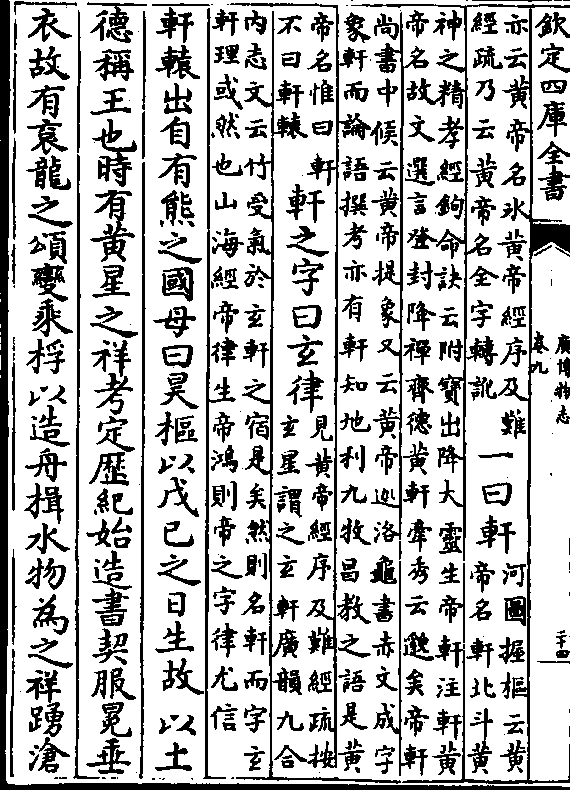 欽定四庫全書
廣博物志
卷九
二十四
亦云黄帝名氷黄帝經序及難
經疏乃云黄帝名全字轉訛
一曰軒
河圖握樞云黄
帝名軒北斗黄
神之精孝經鉤命訣云附寶出降大靈生帝軒注軒黄
帝名故文選言登封降禪齊德黄軒韋秀云邈矣帝軒
尚書中候云黄帝提象又云黄帝巡洛龜書赤文成字
象軒而論語撰考亦有軒知地利九牧昌教之語是黄
帝名惟曰軒
不曰軒轅
軒之字曰玄律
見黄帝經序及難經疏按
玄星謂之玄軒廣韻九合
内志文云竹受氣於玄軒之宿是矣然則名軒而字玄
軒理或然也山海經帝律生帝鴻則帝之字律尤信
軒轅出自有熊之國母曰昊樞以戊已之日生故以土
德稱王也時有黄星之祥考定歴紀始造書契服冕垂
衣故有衮龍之頌變乘桴以造舟楫水物為之祥踴滄